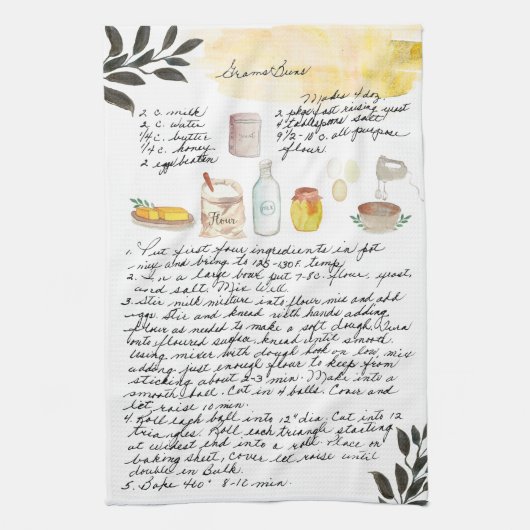 Grams Buns
Makes 4 doz.
2 c. milk
2 c. water
1/4 c. butter
1/4 c. honey
2 eggs beaten
2 pkg fast raising yeast
4 tablespoons salt
9 1/2 - 10 c. all purpose
flour.
Yeast
Flour
MILK
1. Put first four ingredients in pot
mix and bring to 125-130F. temp
2. In a large bowl put 7-8 c. flour, yeast,
and salt. Mix Well.
3. Stir milk mixture into flour mix and add
eggs. Stir and knead with hands adding
flour as needed to make a soft dough. Turn
onto floured surface, knead until smooth.
Using mixer with dough hook on low, mix
adding just enough flour to keep from
sticking about 2-3 min. Make into a
smooth ball. Cut in 4 balls. Cover and
let raise 10 min.
4. Roll each ball into 12" dia. Cut into 12
triangles. Roll each triangle starting
at widest end into a roll. Place on
baking sheet, cover let raise until
double in Bulk.
5. Bake 400° 8-10 min.